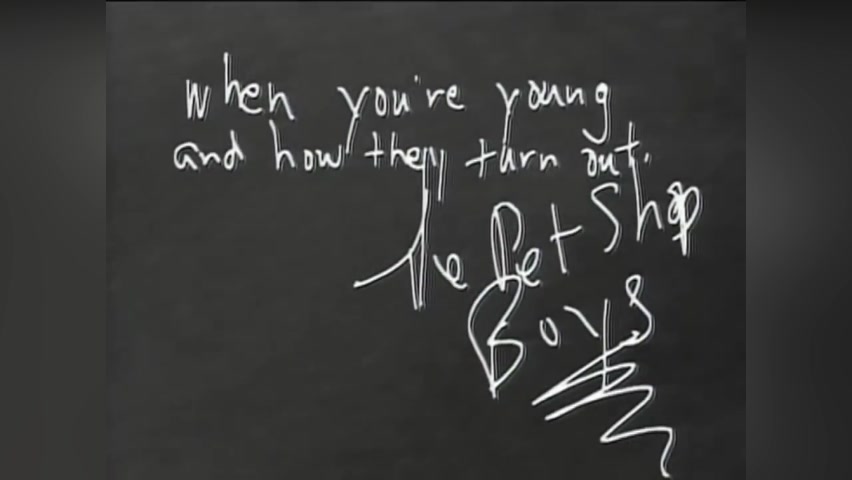 when you're young
and how they turn out.
The Pet Shop
Boys